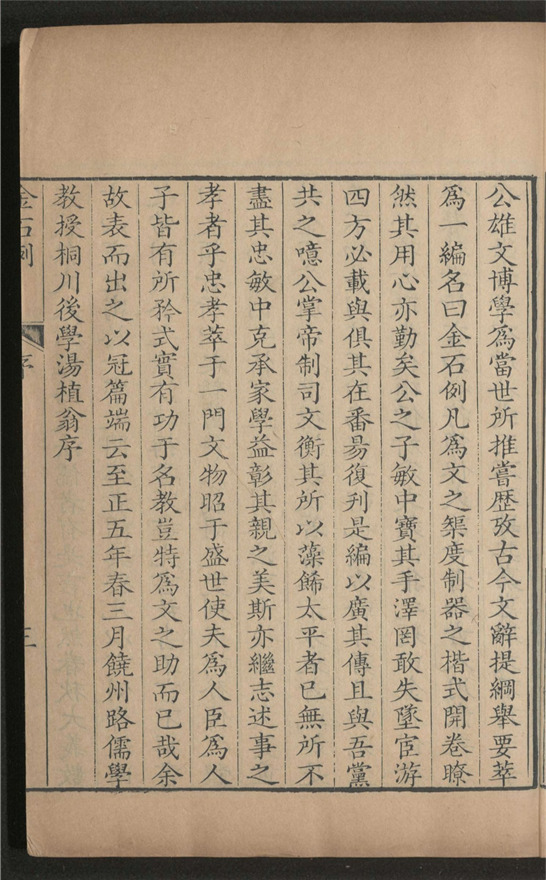 公雄文博學爲當世所推嘗歴攷古今文辭提綱舉要萃
爲一編名曰金石例凡爲文之榘度制器之楷式開卷瞭
然其用心亦勤矣公之子敏中寶其手澤罔敢失墜宦游
四方必載與俱其在番昜復刋是編以廣其傳且與吾黨
共之噫公掌帝制司文衡其所以藻餙太平者已無所不
盡其忠敏中克承家學益彰其親之美斯亦繼志述事之
孝者乎忠孝萃于一門文物昭于盛世使夫爲人臣爲人
子皆有所矜式實有功于名教豈特爲文之助而已哉余
故表而出之以冠篇端云至正五年春三月饒州路儒學
教授桐川後學湯植翁序
金石例
序
三